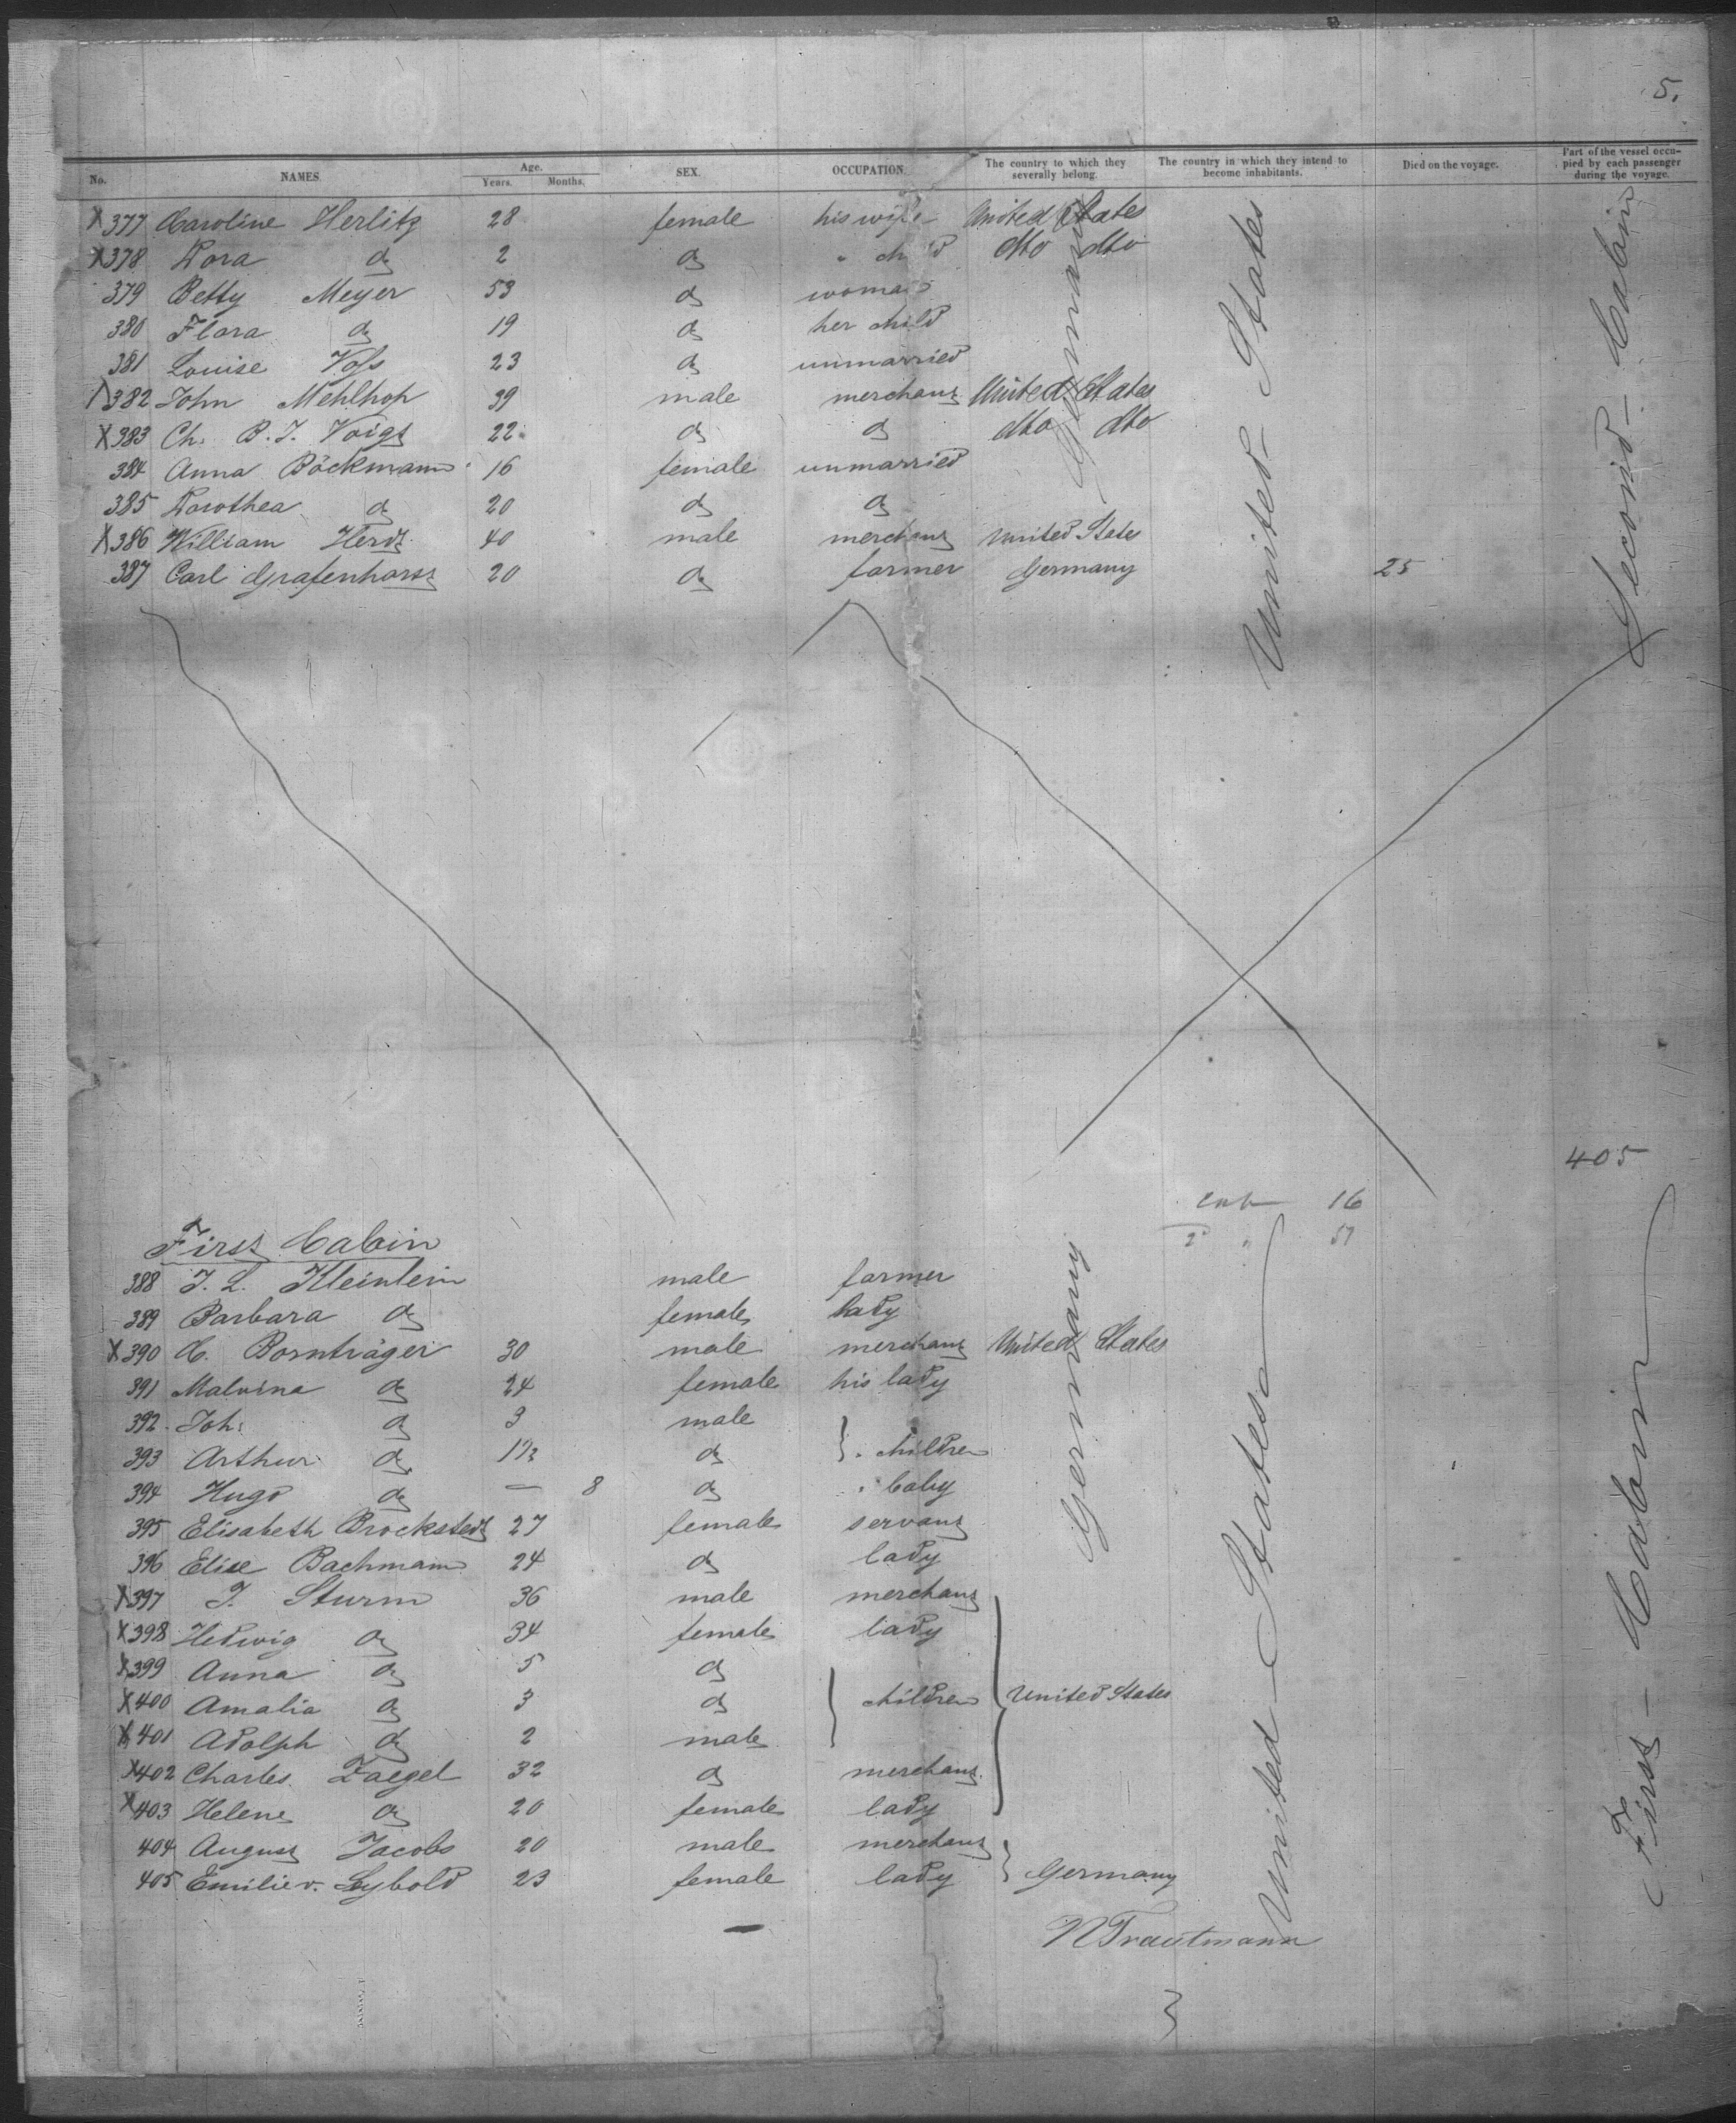 5.
No. NAMES. Age. Years. Months. SEX. OCCUPATION. The country to which they severally belong. The country in which they intend to become inhabitants. Died on the voyage. Part of the vessel occupied by each passenger during the voyage.
X 377 Caroline Herlitz 28 female his wife United States
X 378 Dora do 2 do " child dto dto
379 Betty Meyer 53 do woman
380 Flora do 19 do her child
381 Louise Voss 23 do unmarried
X 382 John Mehlhop 39 male merchant United States
X 383 Ch. B. J. Voigt 22 do do dto dto
384 Anna Böckmann 16 female unmarried
385 Dorothea do 20 do do
X 386 William Herdt 40 male merchant United States
387 Carl Grafenhorst 20 do farmer Germany 25
Germany
United States
Second Cabin
405
Cab 16
2d " 51
First Cabin
388 J. L. Kleinlein male farmer
389 Barbara do female lady
X 390 C. Bornträger 30 male merchant United States
391 Malvina do 24 female his lady
392 Joh: do 3 male
393 Arthur do 1½ do } " children
394 Hugo do — 8 do " baby
395 Elisabeth Brockstedt 27 female servant
396 Elise Bachmann 24 do lady
X 397 J. Sturm 36 male merchant
X 398 Hedwig do 34 female lady
X 399 Anna do 5 do
X 400 Amalia do 3 do } children } United States
X 401 Adolph do 2 male
X 402 Charles Zaegel 32 do merchant
X 403 Helene do 20 female lady
404 August Jacobs 20 male merchant
405 Emilie v. Lybold 23 female lady } Germany
Germany
United States
First Cabin
N Trautmann